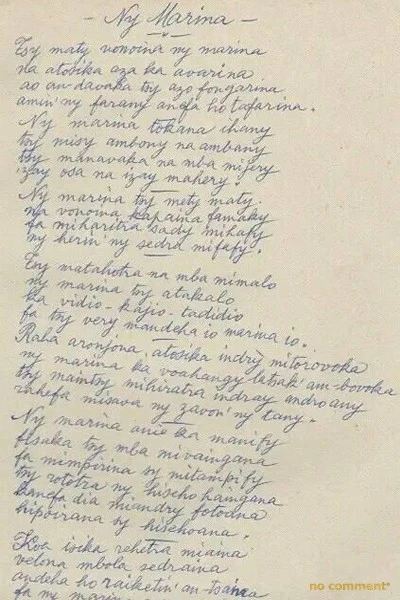 - Ny Marina -
Tsy maty vonoina ny marina
na atosika aza ka avarina
ao an-davaka tsy azo fongarina
amin'ny farany anefa ho tafarina.
Ny marina tokana ihany
tsy misy ambony na ambany
tsy manavaka na mba mijery
izay osa na izay mahery.
Ny marina tsy mety maty
na vonoina kapaina famaky
fa miharitra sady mihafy
ny herin'ny sedra mifafy.
Tsy matahotra na mba mimalo
ny marina tsy atakalo
ka vidio-kajio-tadidio
fa tsy very mandeha io marina io.
Raha aronjona, atosika indry mitorovoka
ny marina ka voahangy latsak'am-bovoka
tsy maintsy mihiratra indray andro any
rahefa misava ny zavon'ny tany.
Ny marina anie ka manify
tsy mba mivaingana
fa mimpirina sy mitampify
tsy rototra ny hiseho haingana
kanefa dia miandry fotoana
hipoirana sy hisehoana.
Koa isika rehetra miaina
velona mbola sedraina
andeha ho raiketin' an-tsaina
fa ny marina
no comment*